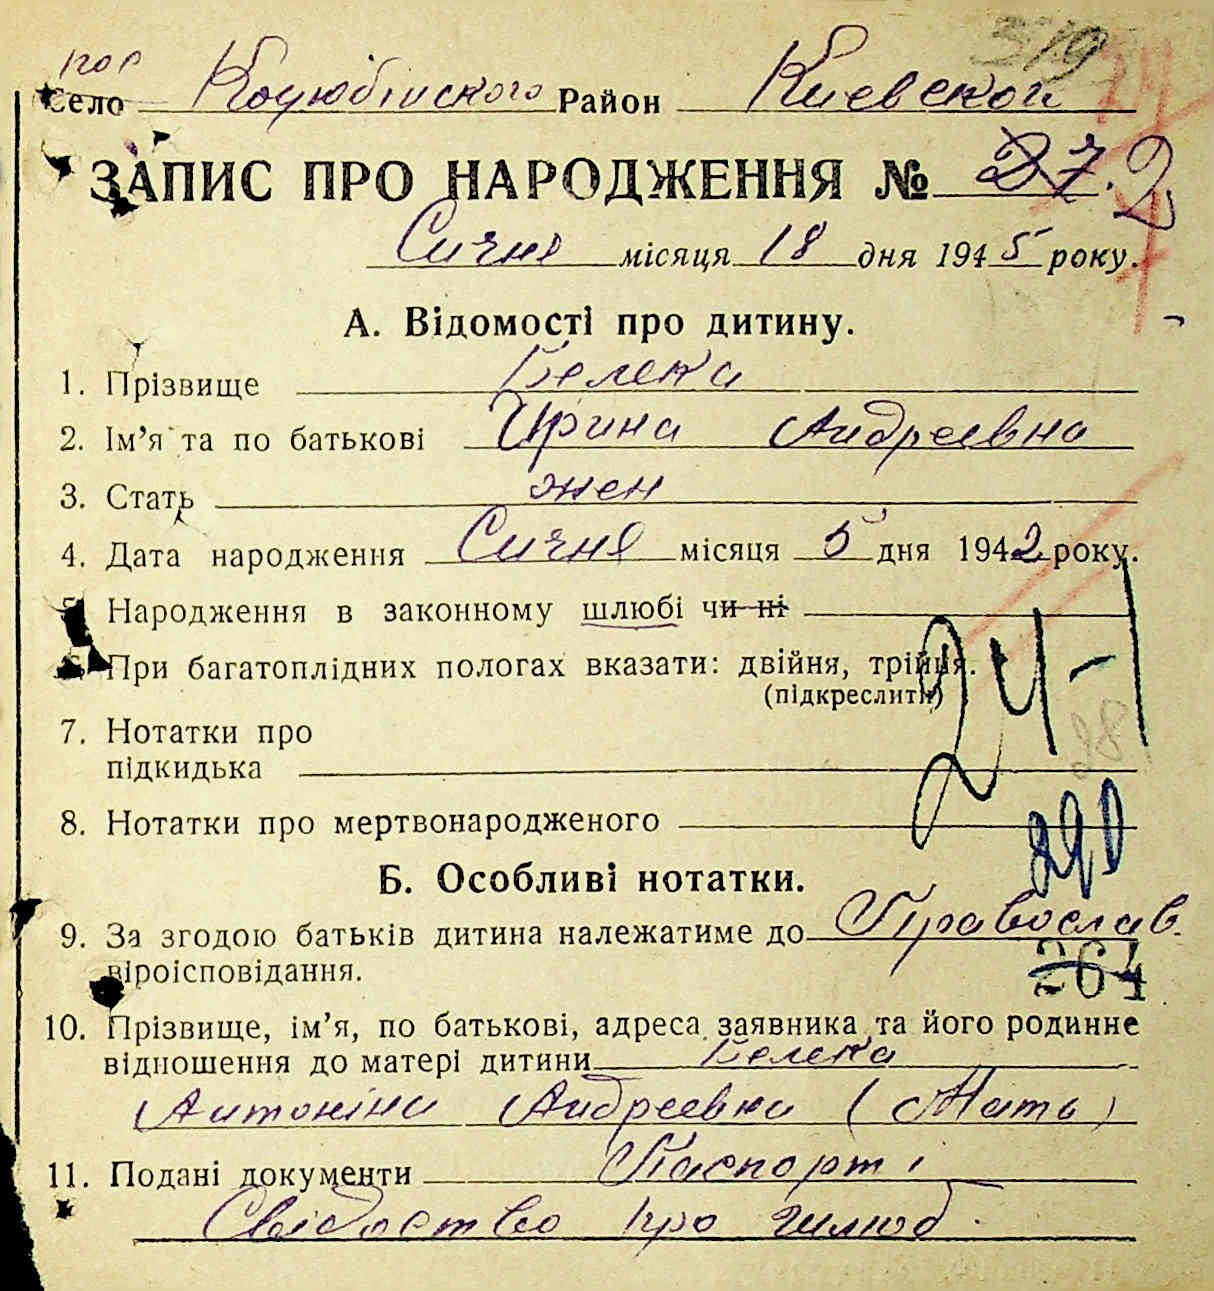 319
пос
Село Коцюбінского Район Киевской
ЗАПИС ПРО НАРОДЖЕННЯ № 27. 2
Сичня місяця 18 дня 1945 року.
А. Відомості про дитину.
1. Прізвище Белека
2. Ім’я та по батькові Ирина Андреевна
3. Стать жен
4. Дата народження Сичня місяця 5 дня 1942 року.
5. Народження в законному шлюбі чи ні
6. При багатоплідних пологах вказати: двійня, трійця.
(підкреслити)
24-1
7. Нотатки про
підкидька
28
8. Нотатки про мертвонародженого
290
Б. Особливі нотатки.
9. За згодою батьків дитина належатиме до Православ.
віроісповідання.
264
10. Прізвище, ім’я, по батькові, адреса заявника та його родинне
відношення до матері дитини Белека
Антоніна Андреевна (Мать)
11. Подані документи Паспорт і
Свідоство про шлюб.